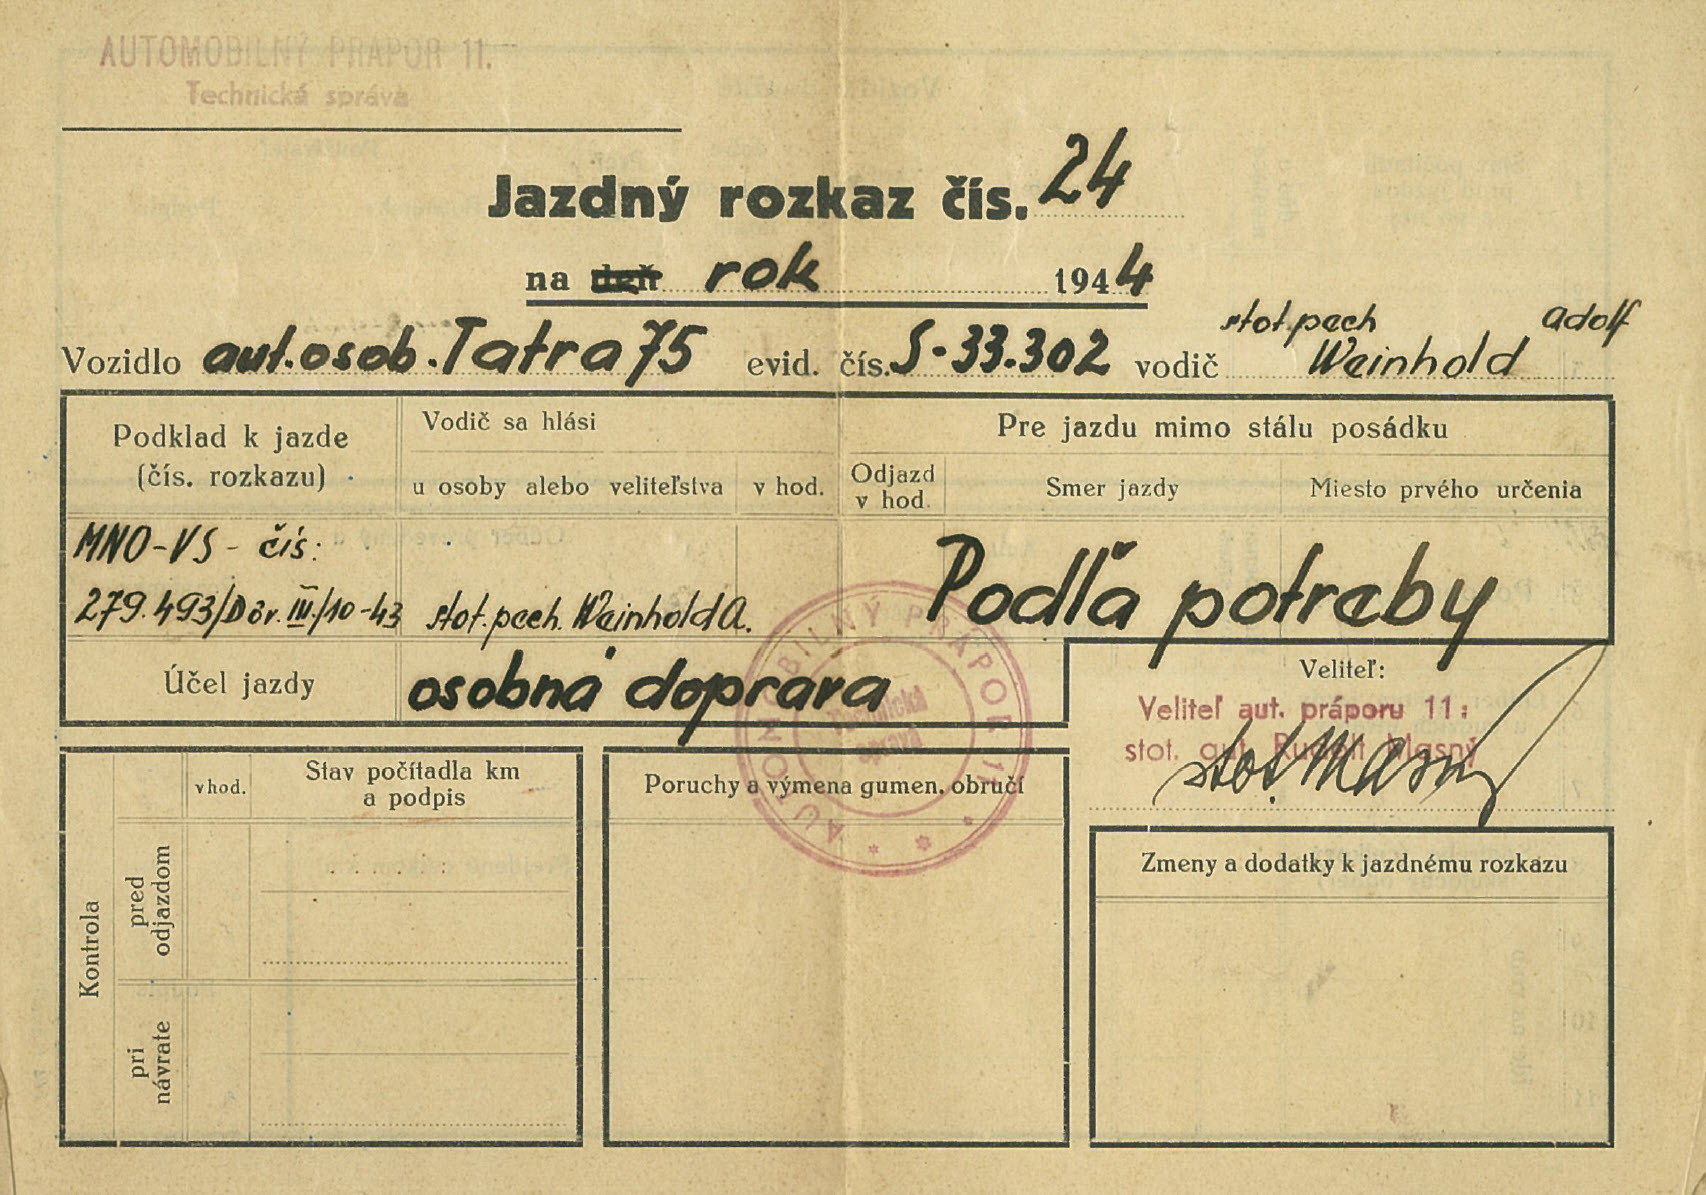 AUTOMOBILNÝ PRAPOR 11.
Technická správa
Jazdný rozkaz čís. 24
na deň rok 1944
stot.pech adolf
Vozidlo aut.osob.Tatra 75 evid. čís. S-33.302 vodič Weinhold
Podklad k jazde
(čís. rozkazu)
Vodič sa hlási
u osoby alebo veliteľstva
v hod.
Pre jazdu mimo stálu posádku
Odjazd
v hod.
Smer jazdy
Miesto prvého určenia
MNO-VS- čís:
279.493/Dôv.III/10-43
stot.pech. Weinhold A.
Podľa potreby
Účel jazdy
osobná doprava
AUTOMOBILNÝ PRÁPOR 11
Technická
správa
Veliteľ:
Veliteľ aut. práporu 11:
stot. aut. Rudolf Mlasný
Kontrola
pred
odjazdom
pri
návrate
v hod.
Stav počítadla km
a podpis
Poruchy a výmena gumen. obručí
Zmeny a dodatky k jazdnému rozkazu